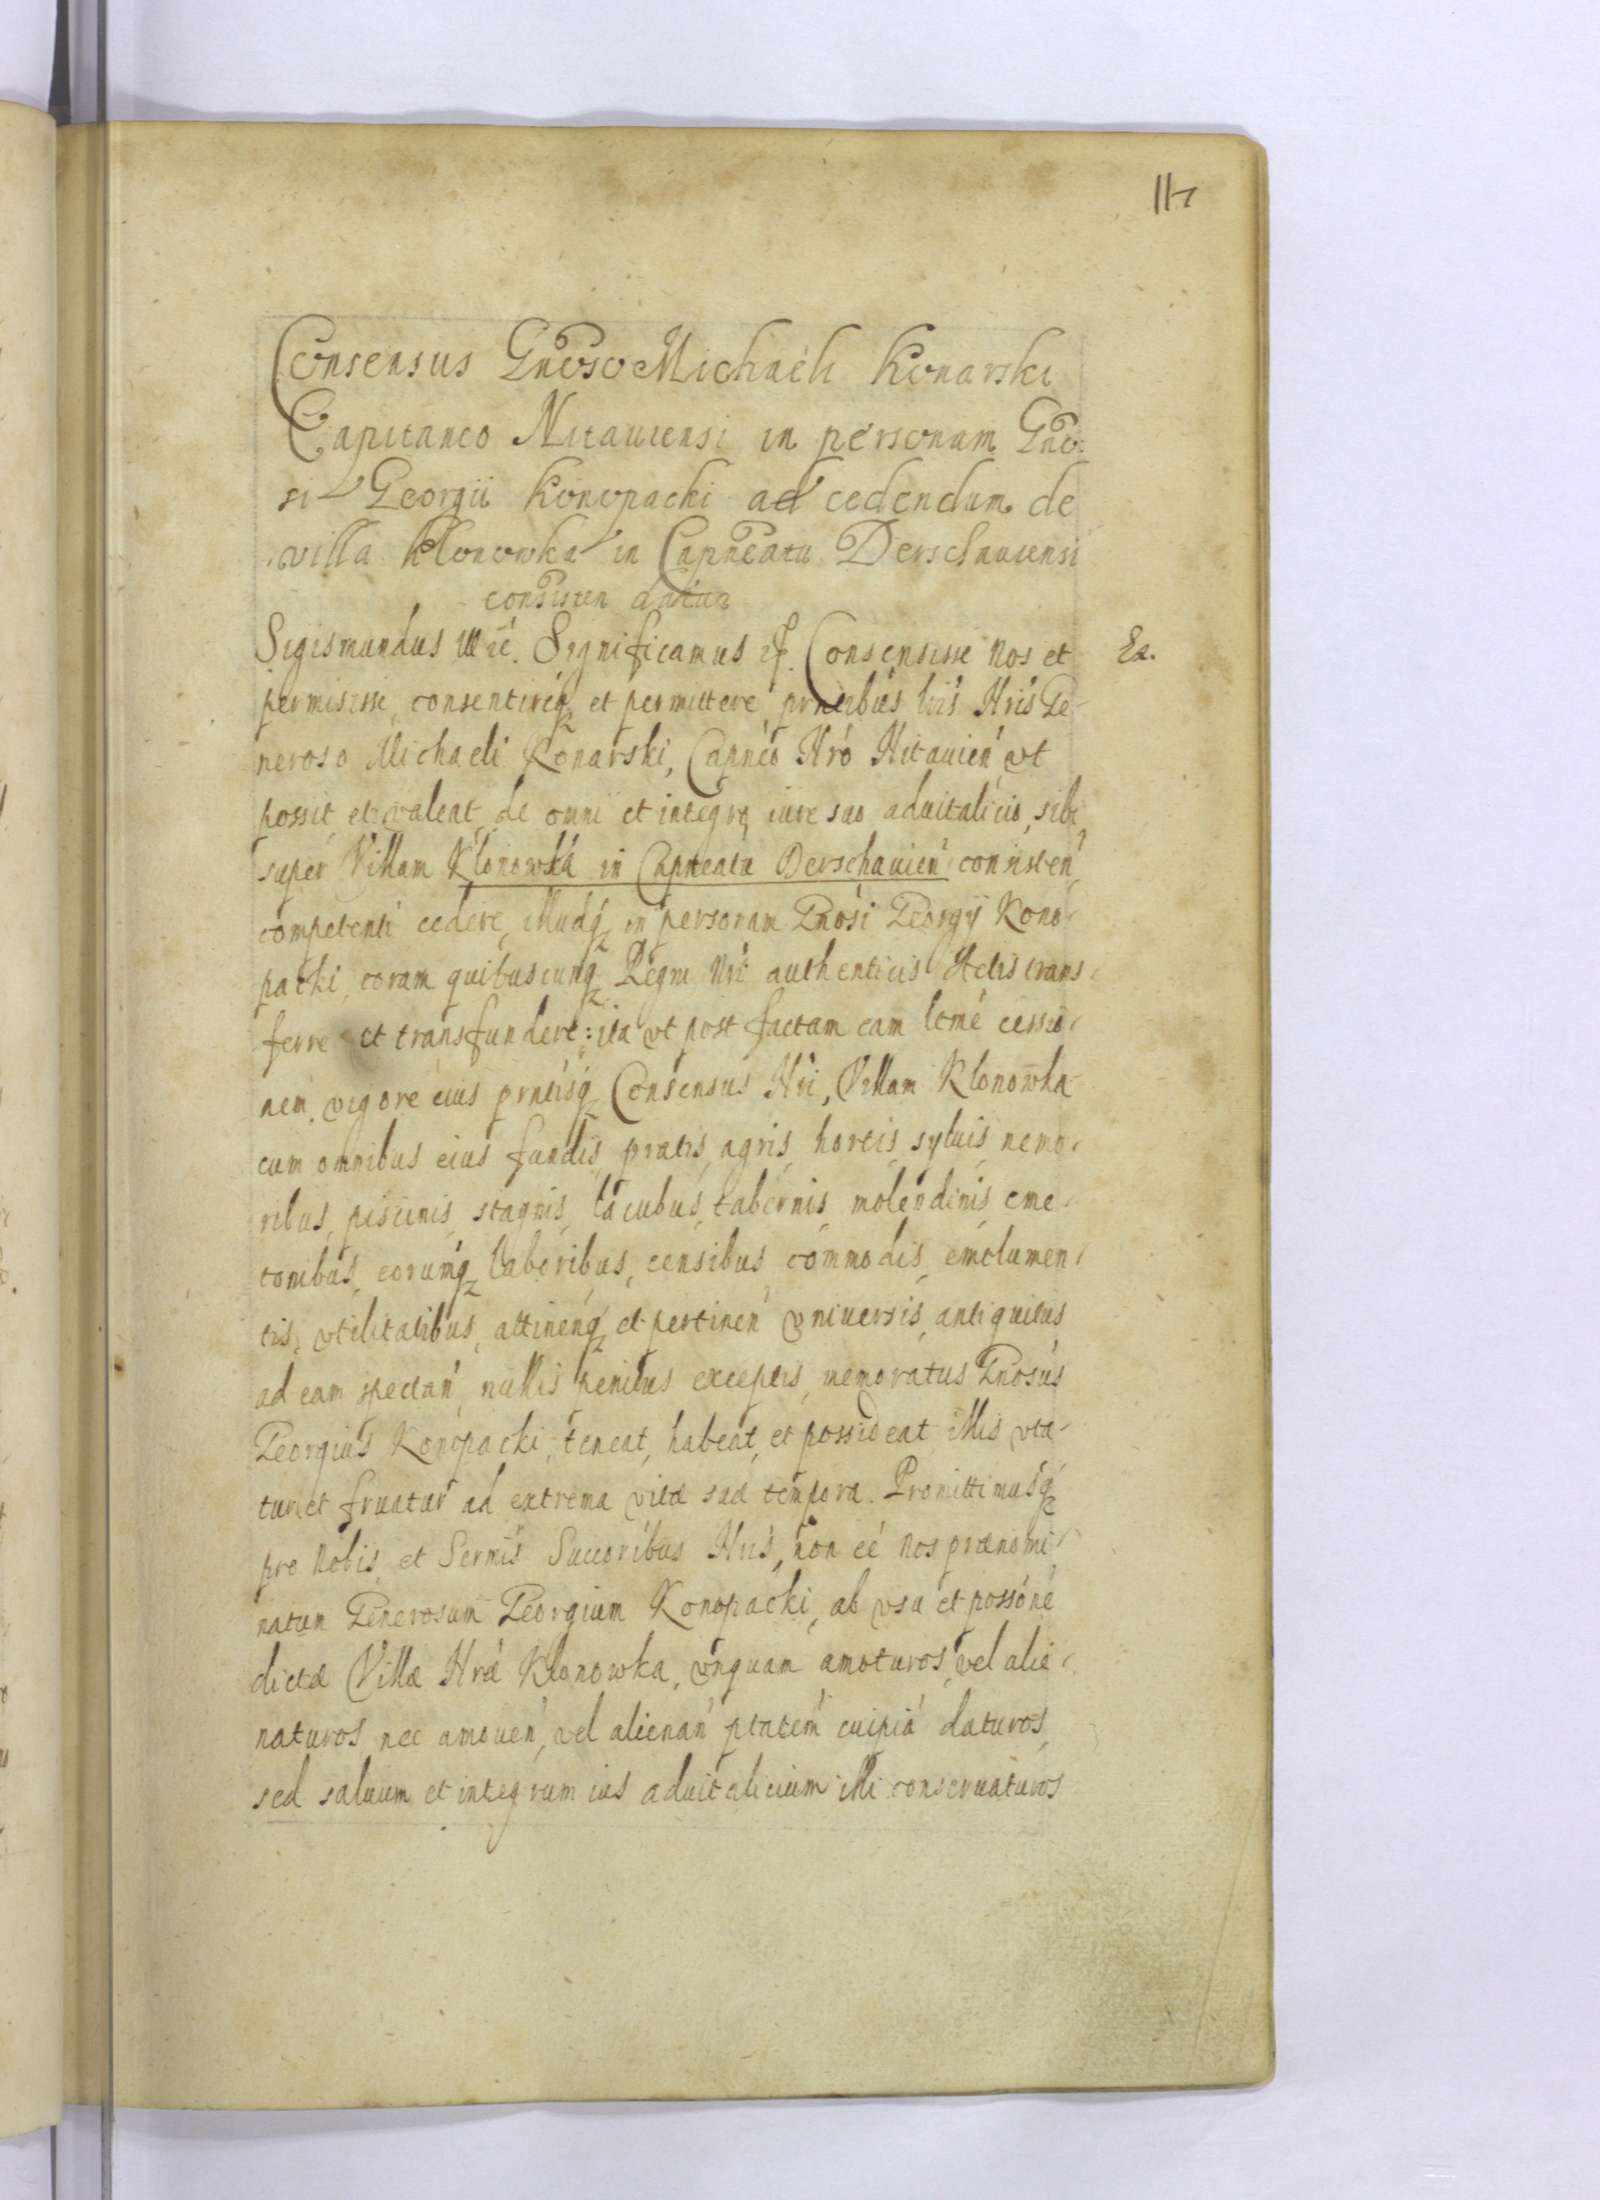 117
Consensus Gnoso Michaeli Konarski
Capitaneo Nitauiensi in personam Gno
si Georgii Konopacki ad cedendum de
villa Klonowka in Capneatu Derschauiensi
consisten datur
Sigismundus III etc. Significamus etc. Consensisse Nos et
permisisse, consentireq et permittere, prntibus lris Nris Ge-
neroso Michaeli Konarski, Capneo Nro Nitauien, vt
possit et valeat de omni et integro iure suo aduitalicio, sibi
super Villam Klonowka in Capneatu Derschauien consisten
competenti cedere, illudq in personam Gnosi Georgij Kono-
packi, coram quibuscunq Regni Nri authenticis Actis trans-
ferre et transfundere: ita vt post factam eam ltme cessio-
nem, vigore eius prntisq Consensus Nri, Villam Klonowka
cum omnibus eius fundis, pratis, agris, hortis, syluis, nemo-
ribus, piscinis, stagnis, lacubus, tabernis, molendinis, cme-
tonibus, eorumq laboribus, censibus, commodis, emolumen-
tis, vtilitatibus, attinenq et pertinen vniuersis, antiquitus
ad eam spectan, nullis penitus exceptis, memoratus Gnosus
Georgius Konopacki, teneat, habeat, et possideat illis vta-
tur et fruatur ad extrema vitæ suæ tempora. Promittimusq
pro Nobis, et Sermis Succoribus Nris, non eé Nos prænomi-
natum Generosum Georgium Konopacki, ab vsu et possóne
dictæ Villæ Nræ Klonowka, vnquam amoturos, vel alie-
naturos, nec amouen, vel alienan ptatem cuipiá daturos,
sed saluum et integrum ius aduitalicium illi conseruaturos
Ex.